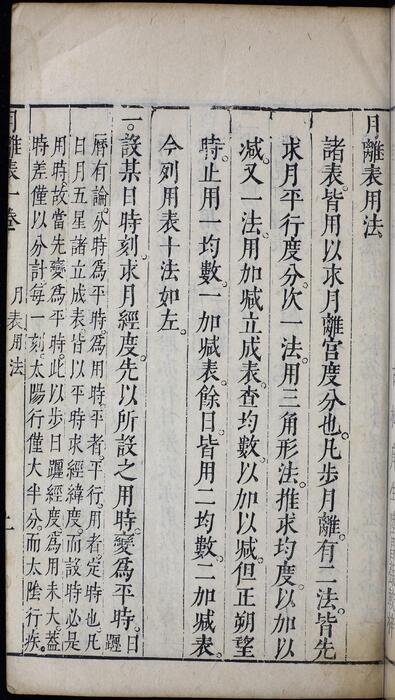 月離表用法
諸表。皆用以求月離宮度分也。凡步月離。有二法。皆先
求月平行度分。次一法。用三角形法。推求均度。以加以
減。又一法。用加減立成表。查均數。以加以減。但正朔望
時。止用一均數。一加減表。餘日皆用二均數。二加減表。
今列用表十法如左。
一。設某日時刻。求月經度。先以所設之用時。變為平時。日躔
曆有論。分時為平時。為用時。平者平行。用者定時也。凡
日月五星諸立成表。皆以平時求經緯度。而設時必是
用時。故當先變為平時。此以步日躔經度。為用未大。蓋
時差僅以分計。每一刻。太陽行僅大半分。而太陰行疾。
月離表一卷
月表用法